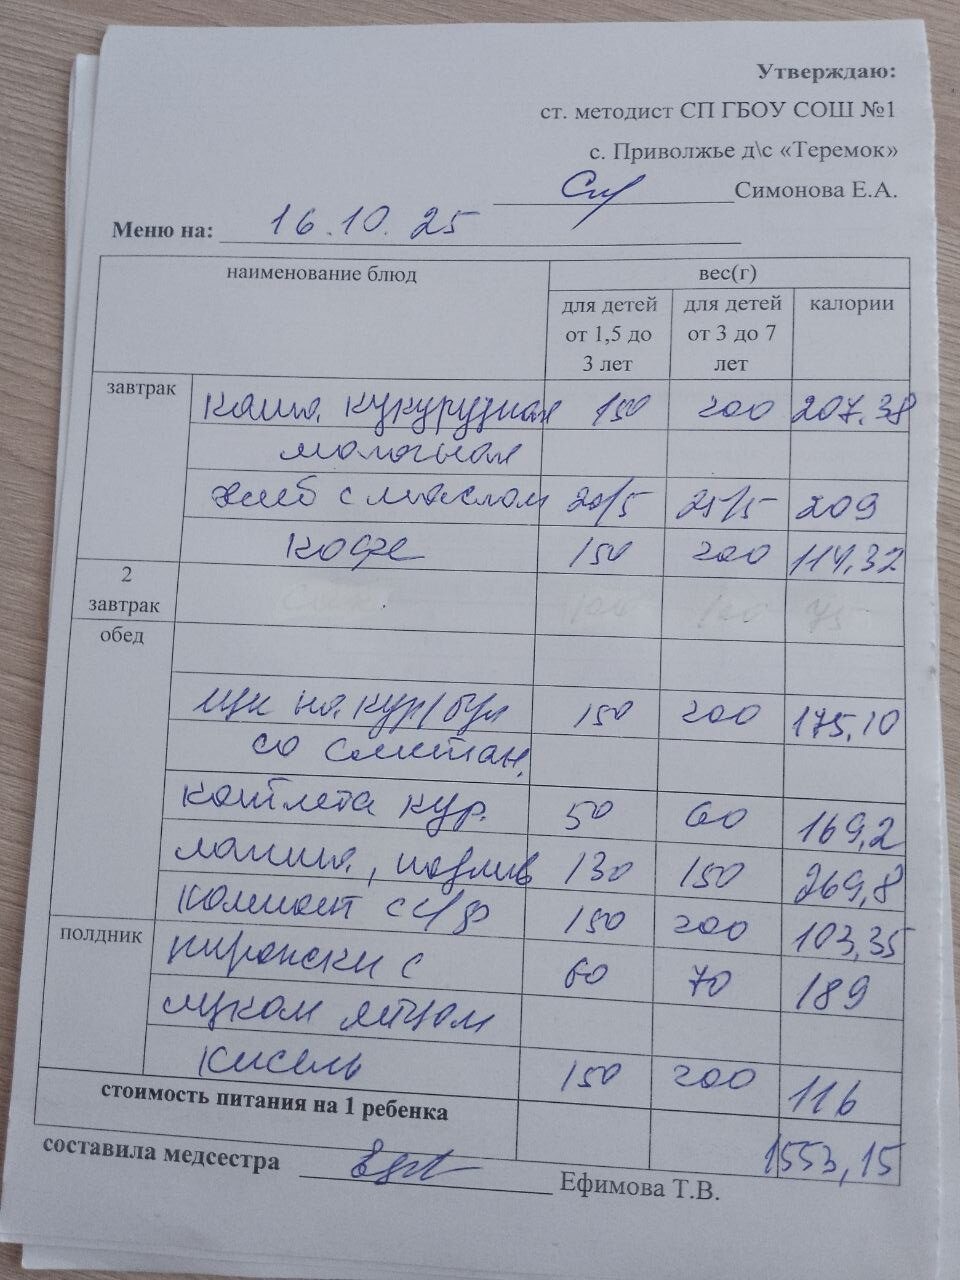 Утверждаю:
ст. методист СП ГБОУ СОШ №1
с. Приволжье д\с «Теремок»
Симонова Е.А.
Меню на: 16.10.25
наименование блюд вес(г)
для детей от 1,5 до 3 лет для детей от 3 до 7 лет калории
завтрак каша кукурузная 150 200 207.38
молочная
хлеб с маслом 20/5 25/5 209
кофе 150 200 114,32
2 завтрак
обед
щи на кур/бул 150 200 175,10
со сметан.
котлета кур. 50 60 169,2
лапша, подлив 130 150 269,8
компот с с/ф 150 200 103,35
полдник пирожки с 60 70 189
луком яйцом
кисель 150 200 116
стоимость питания на 1 ребенка 1553,15
составила медсестра Ефимова Т.В.